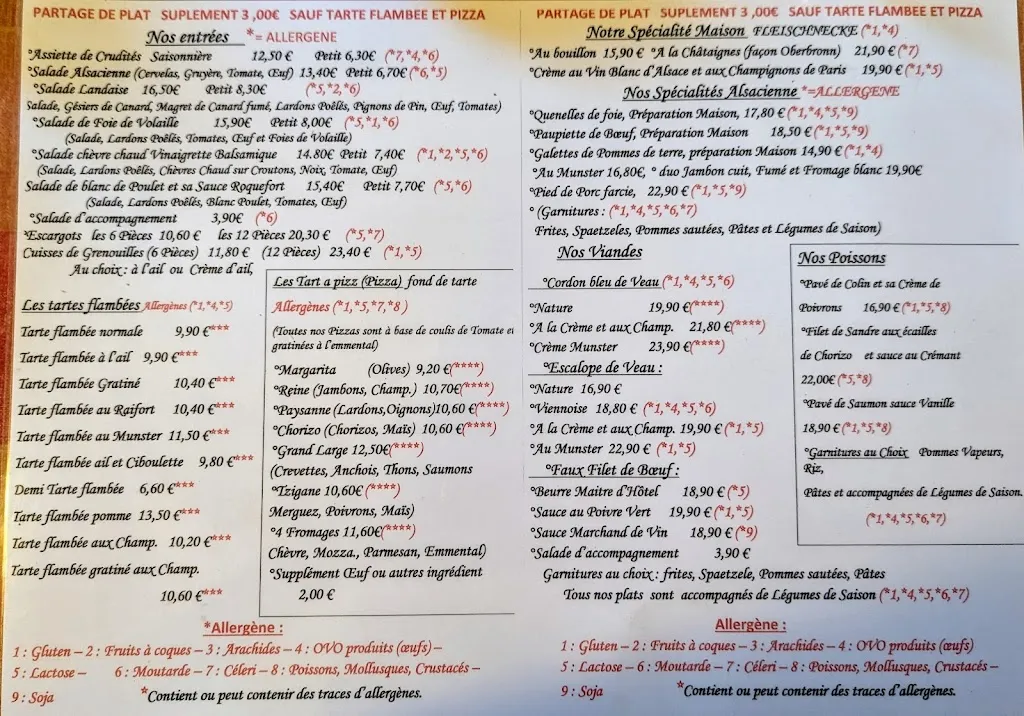 PARTAGE DE PLAT SUPLEMENT 3 ,00€ SAUF TARTE FLAMBEE ET PIZZA
Nos entrées *= ALLERGENE
°Assiette de Crudités Saisonnière 12,50 € Petit 6,30€ (*7,*4,*6)
°Salade Alsacienne (Cervelas, Gruyère, Tomate, Œuf) 13,40€ Petit 6,70€ (*6,*5)
°Salade Landaise 16,50€ Petit 8,30€ (*5,*2,*6)
Salade, Gésiers de Canard, Magret de Canard fumé, Lardons Poêlés, Pignons de Pin, Œuf, Tomates)
°Salade de Foie de Volaille 15,90€ Petit 8,00€ (*5,*1,*6)
(Salade, Lardons Poêlés, Tomates, Œuf et Foies de Volaille)
°Salade chèvre chaud Vinaigrette Balsamique 14.80€ Petit 7,40€ (*1,*2,*5,*6)
(Salade, Lardons Poêlés, Chèvres Chaud sur Croutons, Noix, Tomate, Œuf)
Salade de blanc de Poulet et sa Sauce Roquefort 15,40€ Petit 7,70€ (*5,*6)
(Salade, Lardons Poêlés, Blanc Poulet, Tomates, Œuf)
°Salade d'accompagnement 3,90€ (*6)
°Escargots les 6 Pièces 10,60 € les 12 Pièces 20,30 € (*5,*7)
Cuisses de Grenouilles (6 Pièces) 11,80 € (12 Pièces) 23,40 € (*1,*5)
Au choix : à l'ail ou Crème d'ail,
Les tartes flambées Allergènes (*1,*4,*5)
Tarte flambée normale 9,90 €***
Tarte flambée à l'ail 9,90 €***
Tarte flambée Gratiné 10,40 €***
Tarte flambée au Raifort 10,40 €***
Tarte flambée au Munster 11,50 €***
Tarte flambée ail et Ciboulette 9,80 €***
Demi Tarte flambée 6,60 €***
Tarte flambée pomme 13,50 €***
Tarte flambée aux Champ. 10,20 €***
Tarte flambée gratiné aux Champ.
10,60 €***
Les Tart a pizz (Pizza) fond de tarte
Allergènes (*1,*5,*7,*8 )
(Toutes nos Pizzas sont à base de coulis de Tomate et
gratinées à l'emmental)
°Margarita (Olives) 9,20 €(****)
°Reine (Jambons, Champ.) 10,70€(****)
°Paysanne (Lardons,Oignons)10,60 €(****)
°Chorizo (Chorizos, Maïs) 10,60 €(****)
°Grand Large 12,50€(****)
(Crevettes, Anchois, Thons, Saumons
°Tzigane 10,60€ (****)
Merguez, Poivrons, Maïs)
°4 Fromages 11,60€(****)
Chèvre, Mozza., Parmesan, Emmental)
°Supplément Œuf ou autres ingrédient
2,00 €
*Allergène :
1 : Gluten – 2 : Fruits à coques – 3 : Arachides – 4 : OVO produits (œufs) –
5 : Lactose – 6 : Moutarde – 7 : Céleri – 8 : Poissons, Mollusques, Crustacés –
9 : Soja *Contient ou peut contenir des traces d'allergènes.
PARTAGE DE PLAT SUPLEMENT 3 ,00€ SAUF TARTE FLAMBEE ET PIZZA
Notre Spécialité Maison FLEISCHNECKE (*1,*4)
°Au bouillon 15,90 € °A la Châtaignes (façon Oberbronn) 21,90 € (*7)
°Crème au Vin Blanc d'Alsace et aux Champignons de Paris 19,90 € (*1,*5)
Nos Spécialités Alsacienne *=ALLERGENE
°Quenelles de foie, Préparation Maison, 17,80 € (*1,*4,*5,*9)
°Paupiette de Bœuf, Préparation Maison 18,50 € (*1,*5,*9)
°Galettes de Pommes de terre, préparation Maison 14,90 € (*1,*4)
°Au Munster 16,80€, ° duo Jambon cuit, Fumé et Fromage blanc 19,90€
°Pied de Porc farcie, 22,90 € (*1,*5,*9)
° (Garnitures : (*1,*4,*5,*6,*7)
Frites, Spaetzeles, Pommes sautées, Pâtes et Légumes de Saison)
Nos Viandes
°Cordon bleu de Veau (*1,*4,*5,*6)
°Nature 19,90 €(****)
°A la Crème et aux Champ. 21,80 €(****)
°Crème Munster 23,90 €(****)
°Escalope de Veau :
°Nature 16,90 €
°Viennoise 18,80 € (*1,*4,*5,*6)
°A la Crème et aux Champ. 19,90 € (*1,*5)
°Au Munster 22,90 € (*1,*5)
°Faux Filet de Bœuf :
°Beurre Maitre d'Hôtel 18,90 € (*5)
°Sauce au Poivre Vert 19,90 € (*1,*5)
°Sauce Marchand de Vin 18,90 € (*9)
°Salade d'accompagnement 3,90 €
Garnitures au choix : frites, Spaetzele, Pommes sautées, Pâtes
Tous nos plats sont accompagnés de Légumes de Saison (*1,*4,*5,*6,*7)
Nos Poissons
°Pavé de Colin et sa Crème de
Poivrons 16,90 € (*1,*5,*8)
°Filet de Sandre aux écailles
de Chorizo et sauce au Crémant
22,00€ (*5,*8)
°Pavé de Saumon sauce Vanille
18,90 € (*1,*5,*8)
°Garnitures au Choix Pommes Vapeurs,
Riz,
Pâtes et accompagnées de Légumes de Saison.
(*1,*4,*5,*6,*7)
Allergène :
1 : Gluten – 2 : Fruits à coques – 3 : Arachides – 4 : OVO produits (œufs)
5 : Lactose – 6 : Moutarde – 7 : Céleri – 8 : Poissons, Mollusques, Crustacés –
9 : Soja *Contient ou peut contenir des traces d'allergènes.